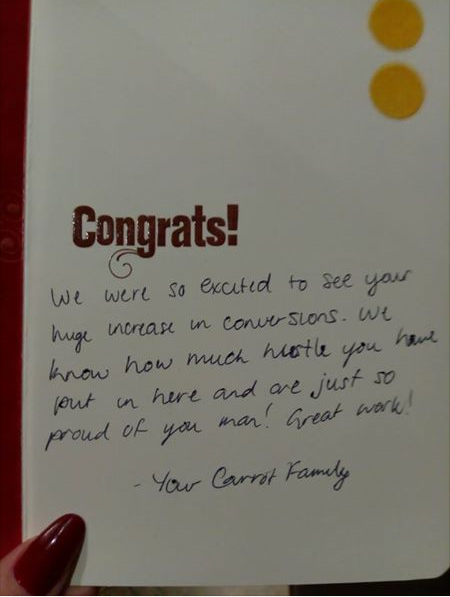 Congrats!
We were so excited to see your
huge increase in conversions. We
know how much hustle you have
put in here and are just so
proud of you man! Great work!
- Your Carrot Family